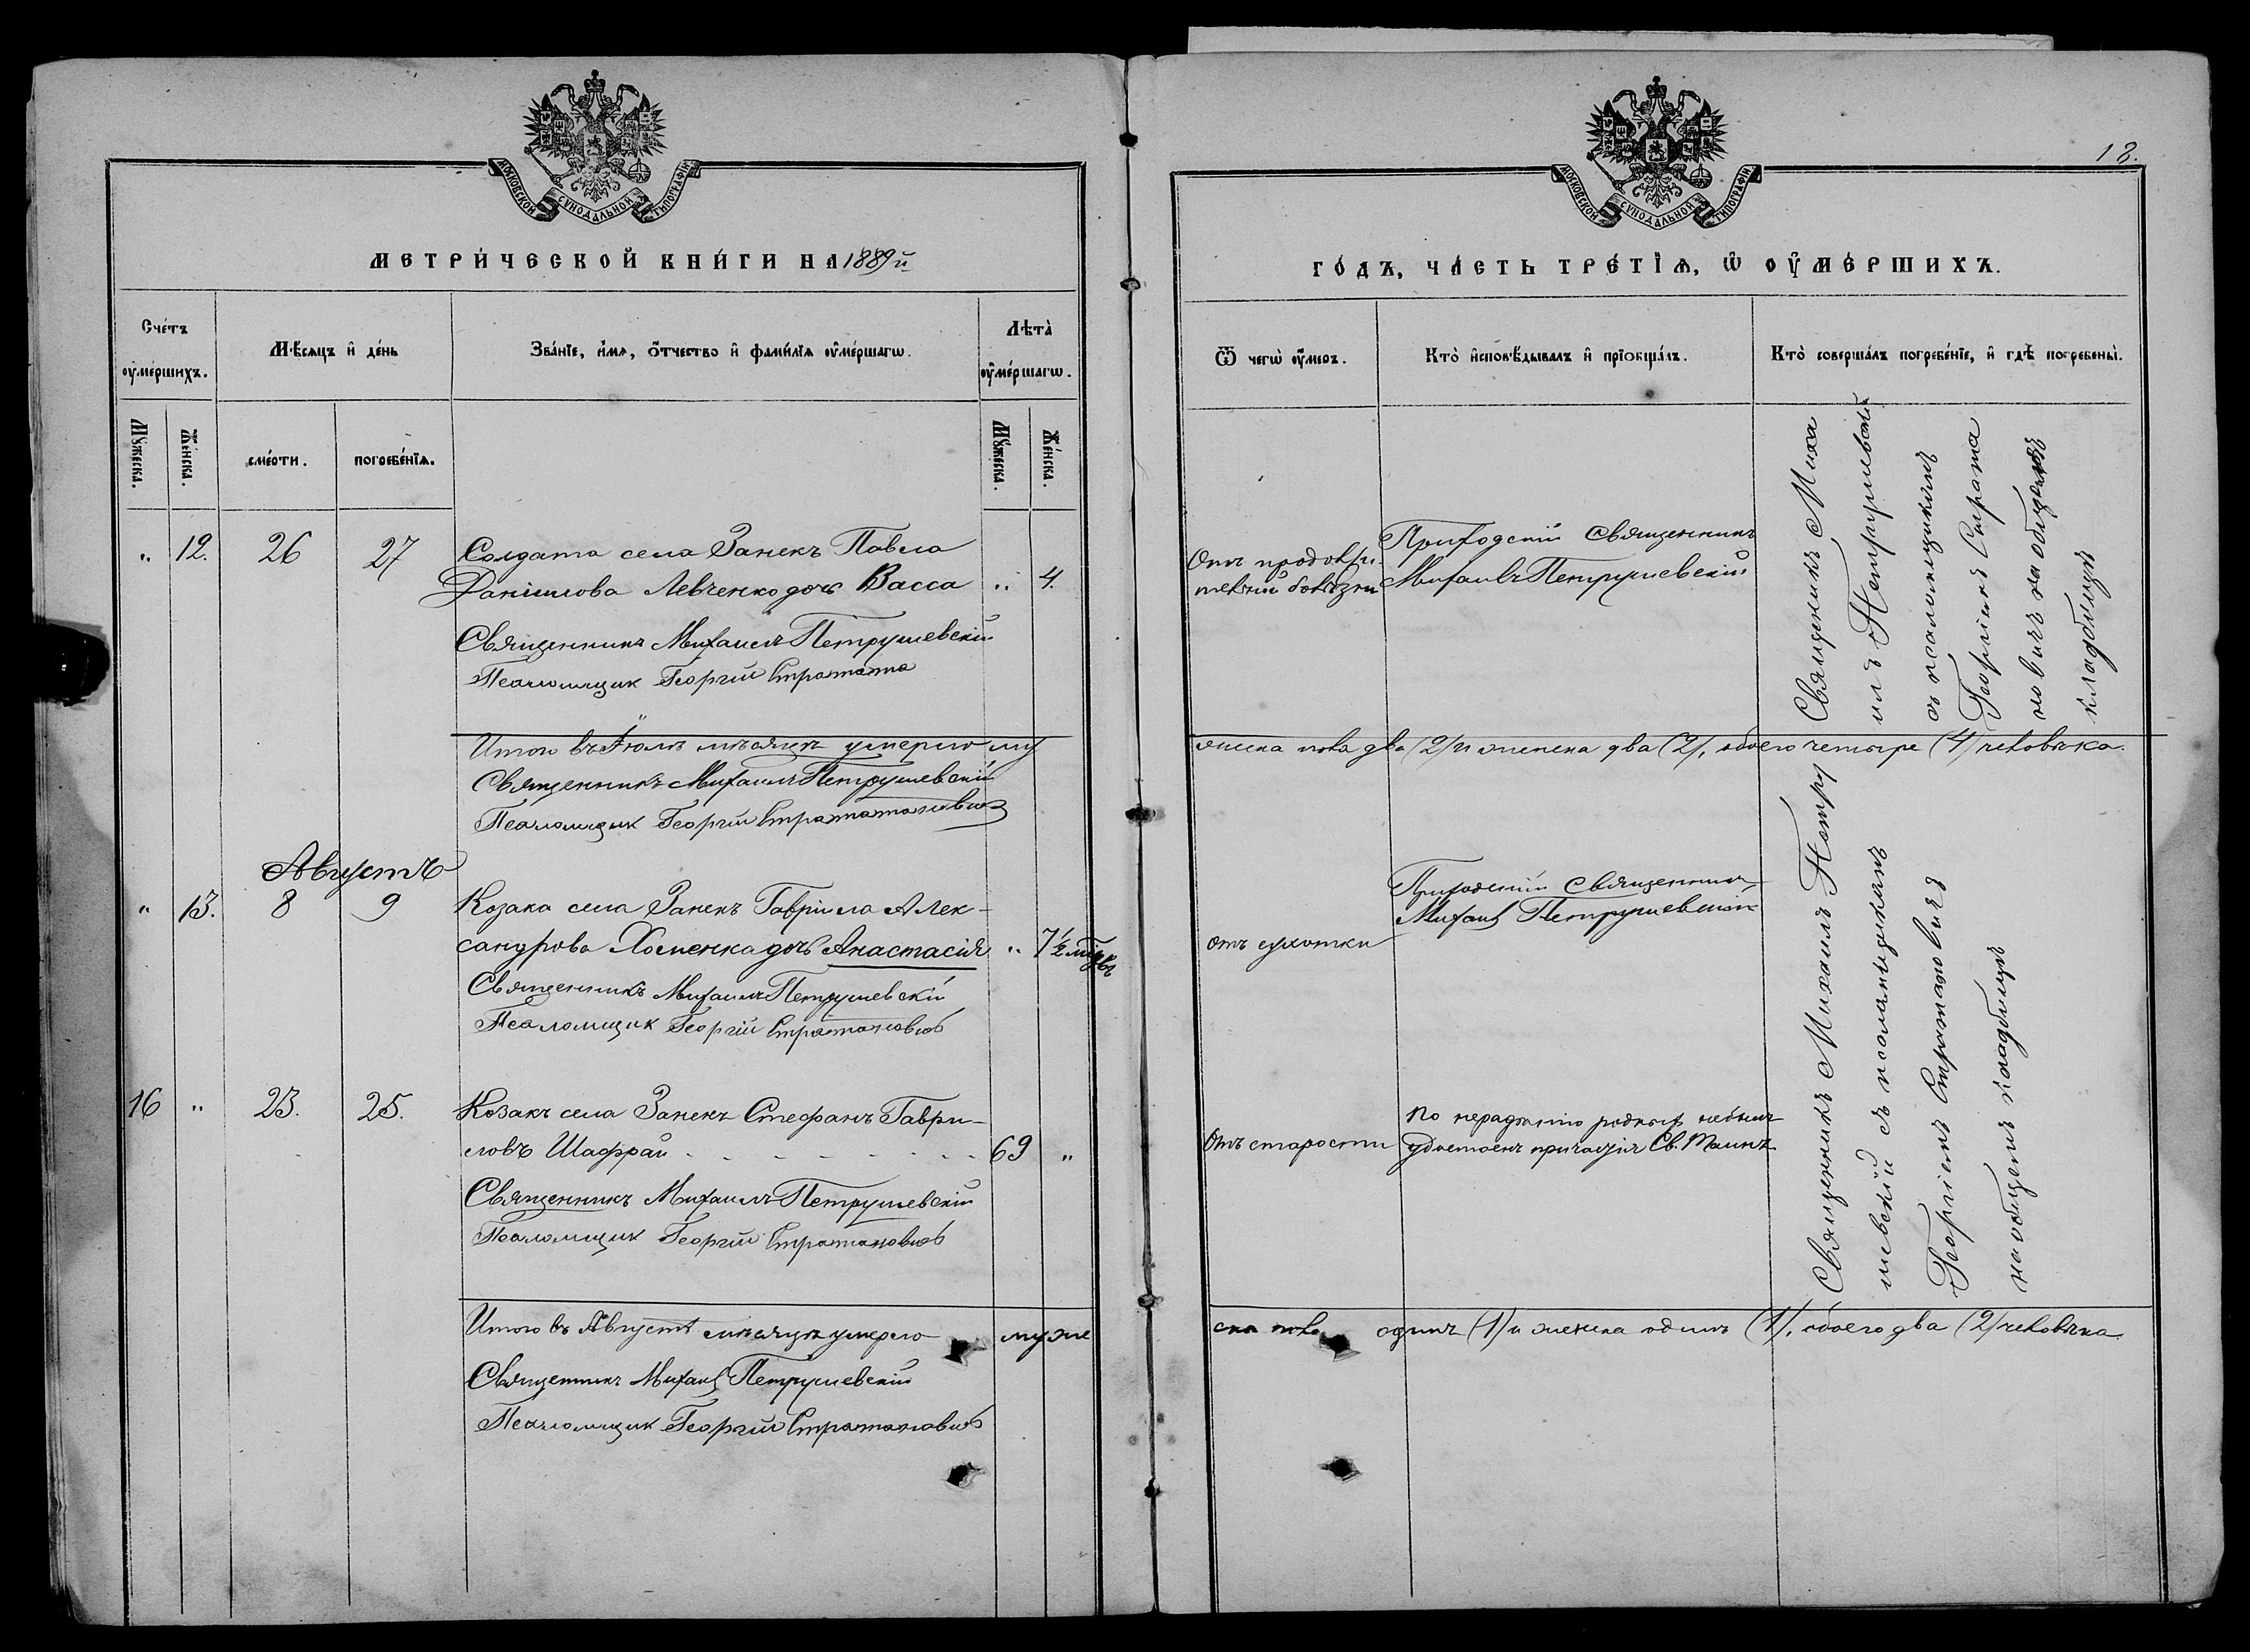 МОСКОВСКОЙ СУНОДАЛЬНОЙ ТИПОГРАФІИ
МЕТРИ́ЧЕСКОЙ КНИ́ГИ НА 1889й
Сче́тъ оу҆ме́ршихъ.
Мѣ́сяцъ и҆ де́нь
Зва́нїе, и҆́мѧ, ѻ҆́тчество и҆ фами́лїѧ оу҆ме́ршагѡ.
Лѣта̀ оу҆ме́ршагѡ.
Мꙋ́жеска.
Же́нска.
сме́рти.
погребе́нїѧ.
Мꙋ́жеска.
Же́нска.
„ 12. 26 27 Солдата села Занекъ Павла
Даніилова Левченко дочь Васса „ 4.
Священникъ Михаилъ Петрушевскій
Псаломщик Георгій
Итого въ Іюлѣ мѣсяцѣ умерло му
Священникъ Михаилъ Петрушевскій
Псаломщик Георгій Стратановичъ
Августъ
„ 13. 8 9 Козака села Занекъ Гавріила Алек-
сандрова Хоменка дочь Анастасія „ 7½ мѣсяцевъ
Священникъ Михаилъ Петрушевскій
Псаломщик Георгій Стратановичъ
16 „ 23. 25. Козакъ села Занекъ Стефанъ Гаври-
ловъ Шафрай - - - - - - - - 69 „
Священникъ Михаилъ Петрушевскій
Псаломщик Георгій Стратановичъ
Итого въ Августѣ мѣсяцѣ умерло муже
Священникъ Михаилъ Петрушевскій
Псаломщик Георгій Стратановичъ
13.
МОСКОВСКОЙ СУНОДАЛЬНОЙ ТИПОГРАФІИ
ГО́ДЪ, ЧА́СТЬ ТРЕ́ТЇѦ, Ѡ҆ ОУ҆МЕ́РШИХЪ.
Ѿ чегѡ̀ оу҆́меръ.
Кто̀ и҆сповѣ́дывалъ и҆ прїобща́лъ.
Кто̀ соверша́лъ погребе́нїе, и҆ гдѣ̀ погребены̀.
Отъ продолжи-
тельной болѣзни
Приходскій Священникъ
Михаилъ Петрушевскій
Священникъ Миха
илъ Петрушевскій
съ псаломщикомъ
Георгіемъ Страта
новичъ на общемъ
кладбищѣ
жеска пола два (2) и женска два (2), обоего четыре (4) человѣка.
отъ сухотки
Приходскій Священникъ
Михаилъ Петрушевскій
Отъ старости
по нерадѣнію родныхъ небылъ
удостоенъ причастія Св. Таинъ
Священникъ Михаилъ Петру
шевскій съ псаломщикомъ
Георгіемъ Стратановичъ
на общемъ кладбищѣ
ска пола одинъ (1) и женска одинъ (1), обоего два (2) человѣка.